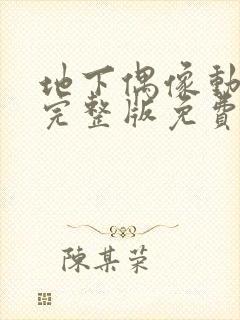 地下偶像動
完整版免費
陳某荣